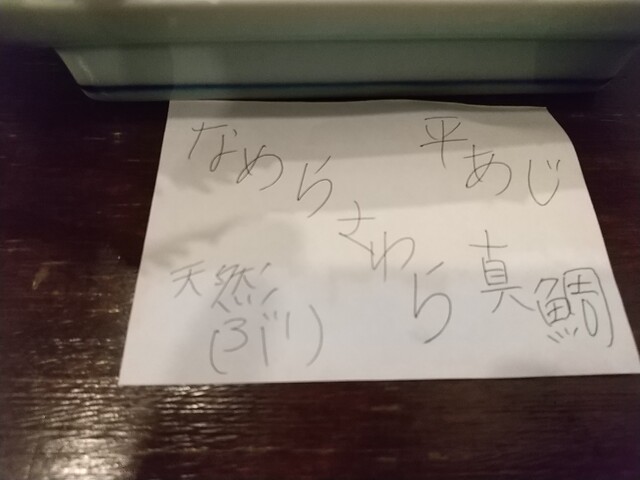 なめら
平あじ
さわら
天然
真鯛